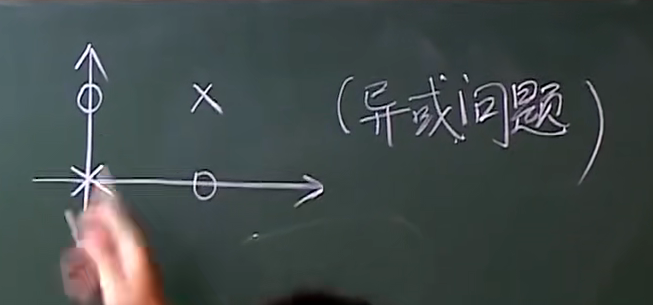 (异或问题)